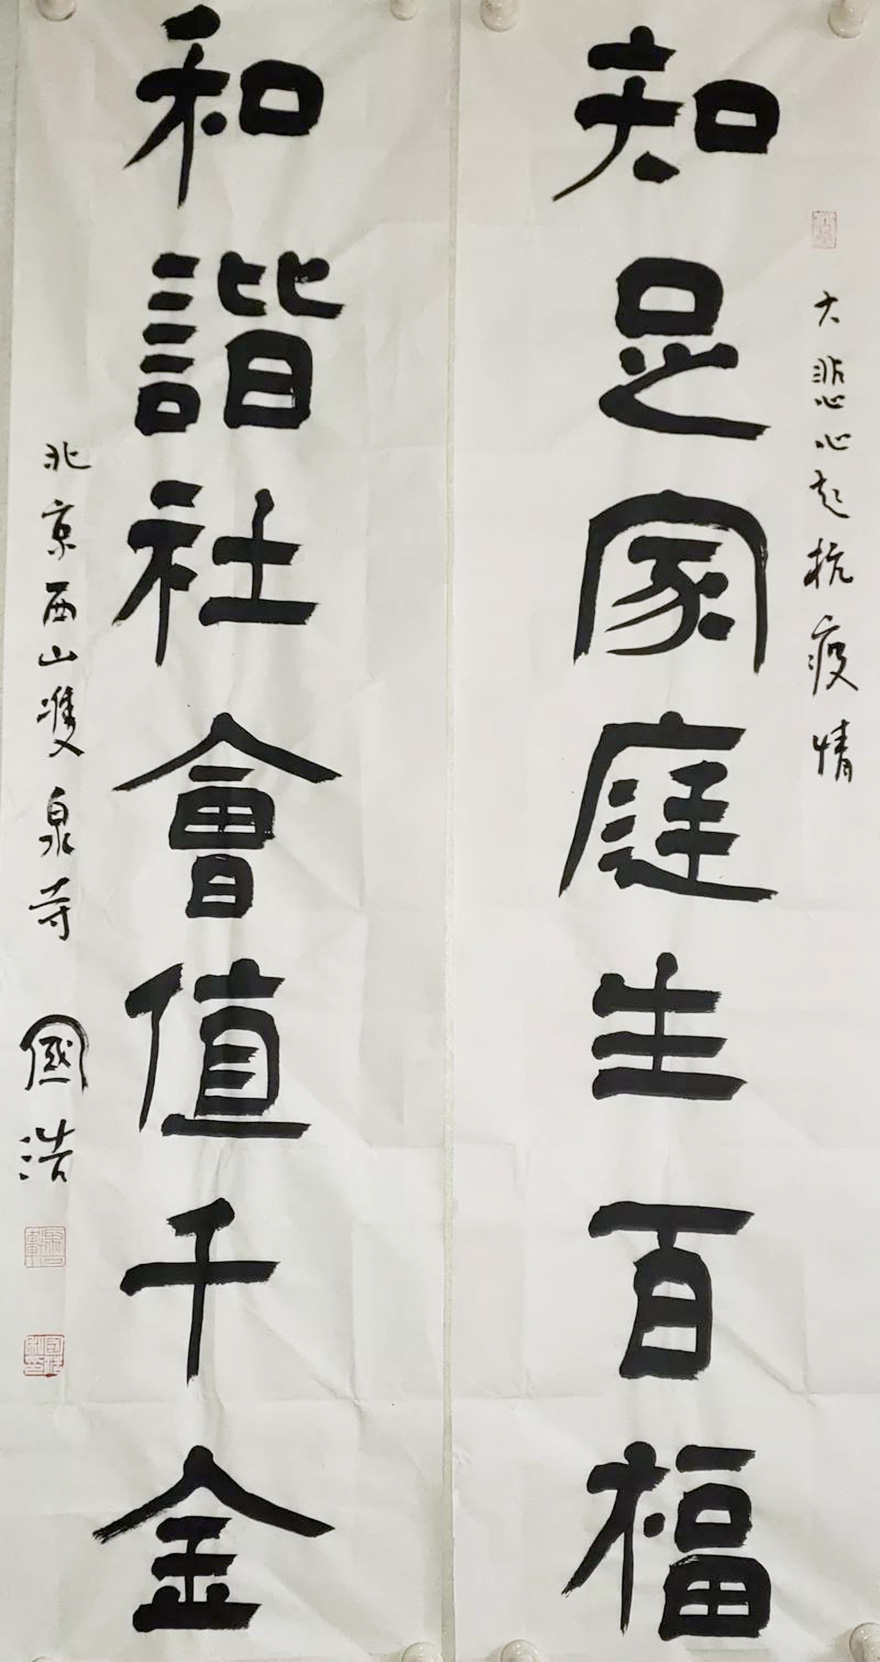 大悲心起抗疫情
知足家庭生百福
和諧社會值千金
北京西山雙泉寺 國浩